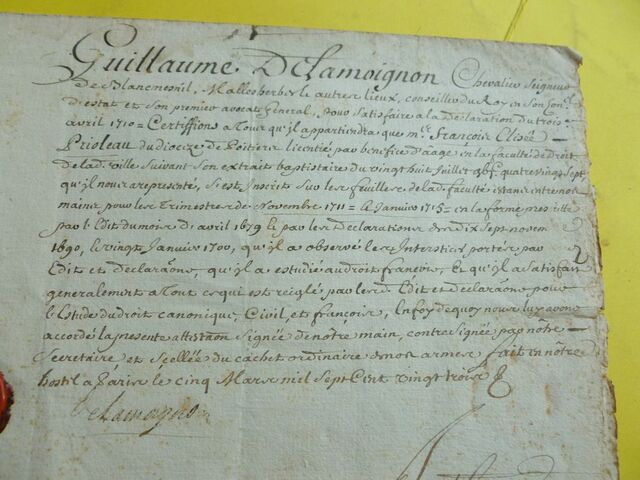 Guillaume Delamoignon Chevalier Seigneur
De Blancmesnil, Mallesherbes & autres lieux, conseiller du Roy en Son Con.er
d'estat et Son premier avocat General, Pour Satisfaire a la Declaration du trois
avril 1710 = Certiffions a Tour qu'il appartiendra que m.e François Elisée
Prioleau du diocize de Poitiers licentié par benefice d'aage en la faculté de Droit
de lad. ville Suivant Son extrait baptistaire du vingt huit Juillet quatre vingt Sept
qu'il nous a representé, S'est Inscrit Sur les feuilles de lad. faculté estans entre nos
mains pour les Trimestres de Novembre 1711 = & Janvier 1715 = en la forme prescritte
par l'Edit du mois d'avril 1679 & par les Declarations des dix Sept novem
1690, & vingt Janvier 1700, qu'il a observé les Interstices portés par
Edit et Declara̅ons, qu'il a estudié au droit françois, Et qu'il a Satisfait
generalement a Tout ce qui est reiglé, par les d. Edit et declara̅ons pour
l'Estude du droit canonique, Civil, et françois, En foy de quoy nous luy avons
accordé la presente attista̅on Signée de nôtre main, contresignée par nôtre
Secretaire et Scellée du cachet ordinaire de nos armes fait en nôtre
hostel a Paris le cinq Mars mil Sept Cent vingt trois
Delamoignon